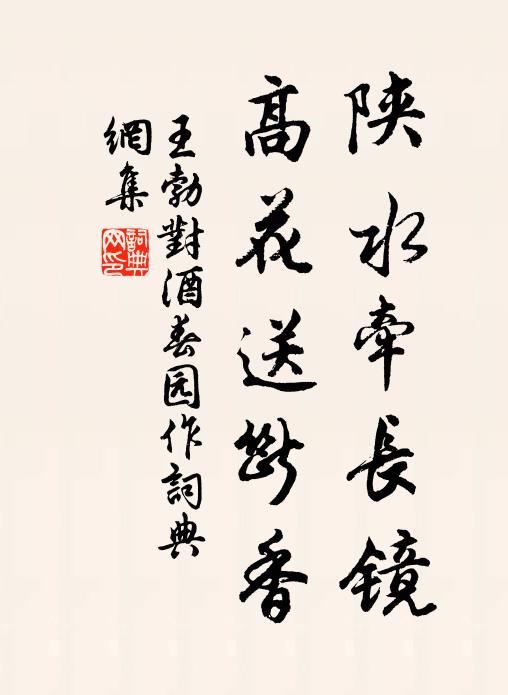 陕水牵長镜
高花送断香
王勃對酒春园作詞典
網集
詞典网印